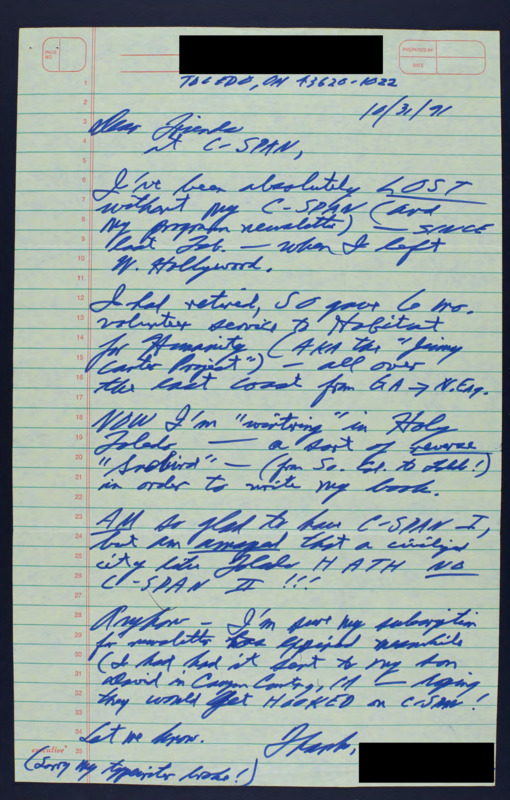 PAGE NO.
PREPARED BY
DATE
TOLEDO, OH 43620-1022
10/31/91
Dear Friends
at C-SPAN,
I've been absolutely LOST
without my C-SPAN (and
my program newsletter) — SINCE
last Feb. — when I left
W. Hollywood.
I had retired, SO gave 6 mo.
volunteer service to Habitat
for Humanity (AKA the "Jimmy
Carter Project") — all over
the east coast from GA → N.Eng.
NOW I'm "wintering" in Holy
Toledo — a sort of reverse
"Snobird" — (from So. Cal. to !)
in order to write my book.
AM so glad to have C-SPAN I,
but am amazed that a civilized
city like Toledo HATH NO
C-SPAN II !!!
Anyhow — I'm sure my subscription
for newsletter has expired meanwhile
(I had had it sent to my son
David in Canyon Country, CA — hoping
they would get HOOKED on C-SPAN!
Let me know.
Thanks,
executive
(Sorry my typewriter broke!)
1
2
3
4
5
6
7
8
9
10
11
12
13
14
15
16
17
18
19
20
21
22
23
24
25
26
27
28
29
30
31
32
33
34
35